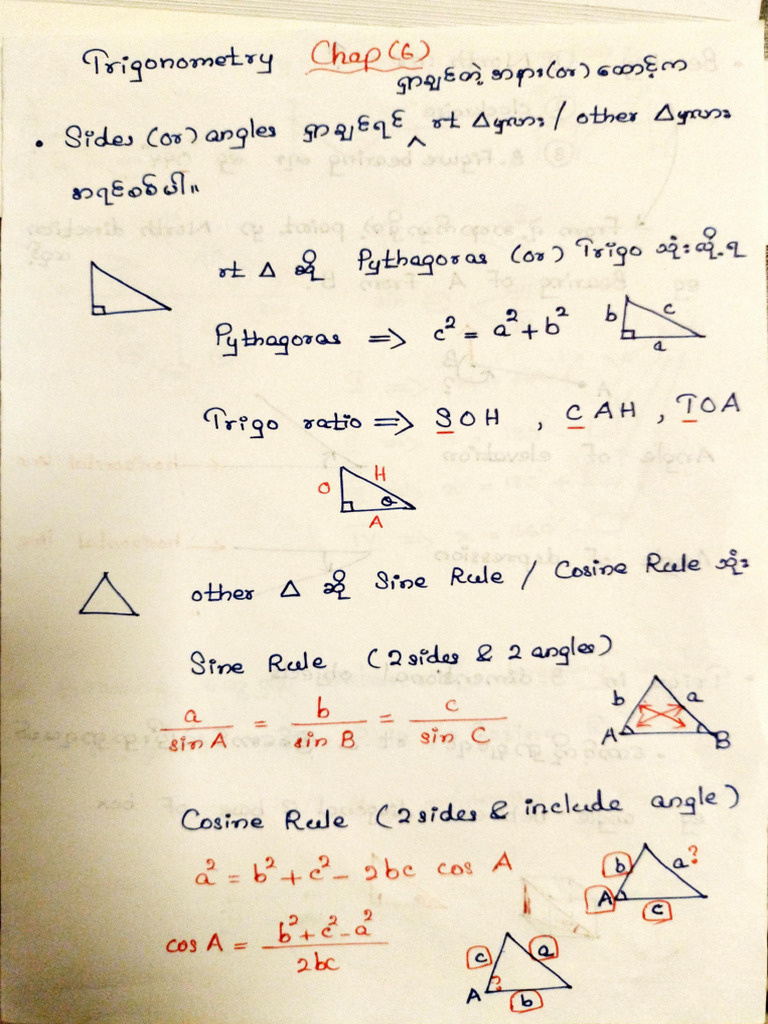 Trigonometry Chap (6)
ရှာချင်တဲ့ အနား (or) ထောင့်က
• Sides (or) angles ရှာချင်ရင် ^ rt △မှလား / other △မှလား
အရင်စစ်ပါ။
rt △ ဆို Pythagoras (or) Trigo သုံးလို့ရ
Pythagoras ⇒ c² = a² + b²
b c
a
Trigo ratio ⇒ SOH , CAH , TOA
O H
θ
A
other △ ဆို Sine Rule / Cosine Rule သုံး
Sine Rule (2 sides & 2 angles)
a/sin A = b/sin B = c/sin C
b a
A B
Cosine Rule (2 sides & include angle)
a² = b² + c² – 2bc cos A
b a?
A
c
cos A = (b² + c² - a²)/2bc
c a
?
A b